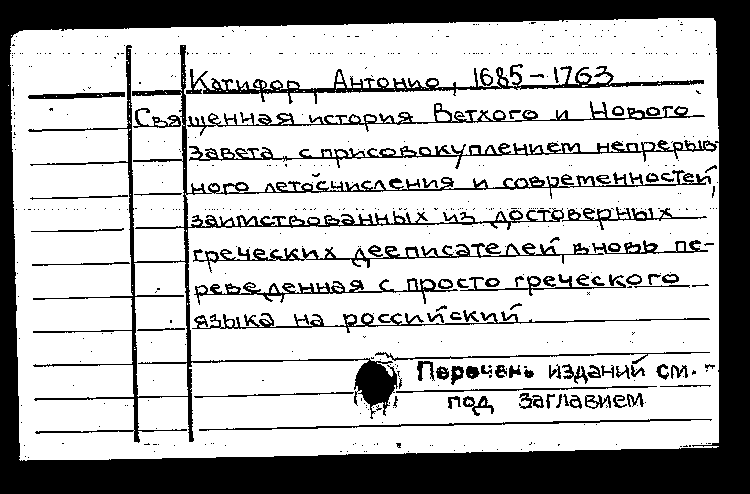 Катифор, Антонио, 1685-1763
Священная история Ветхого и Нового
завета, с присовокуплением непрерыв-
ного летосчисления и современностей,
заимствованных из достоверных
греческих дееписателей, вновь пе-
реведенная с просто греческого
языка на российский.
Перечень изданий см.
под заглавием